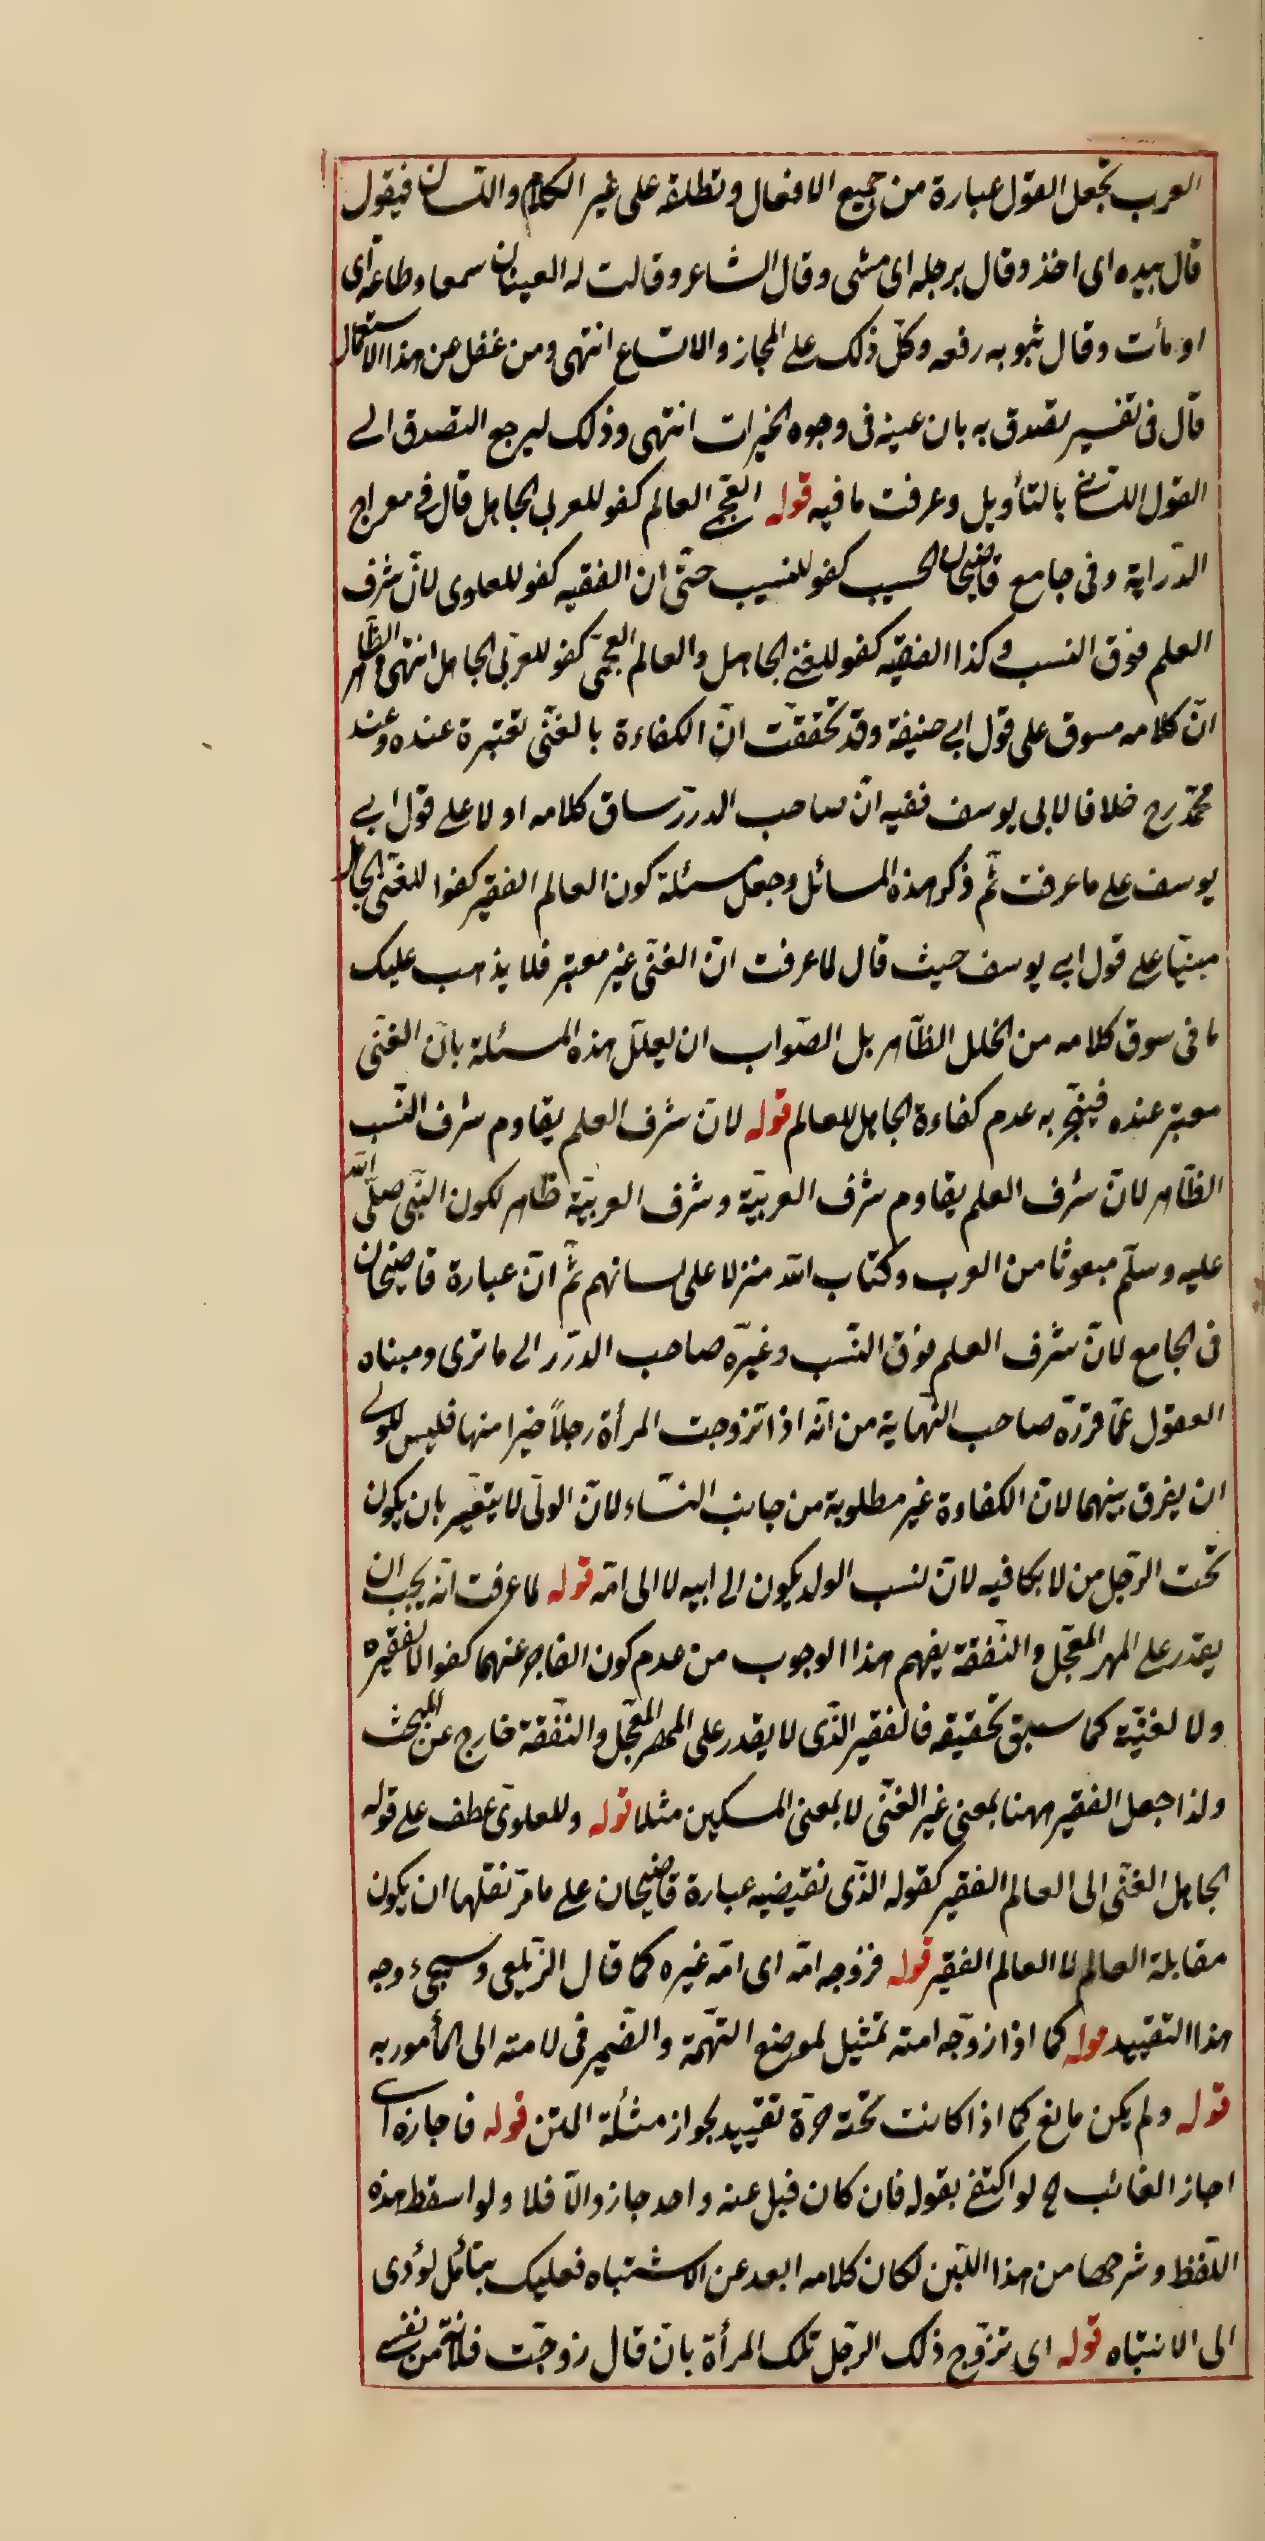 العرب تجعل القول عبارة من جميع الافعال وتطلقه على غير الكلام واللسان فيقول
قال بيده اى اخذ وقال برجله اى مشى وقال الشاعر وقالت له العينان سمعا وطاعة اى
اومأت وقال بثوبه رفعه وكل ذلك على المجاز والاتساع انتهى ومن غفل عن هذا الاستعمال
قال فى تفسير يصدق به بان عينه فى وجوه الخيرات انتهى وذلك ليرجع التصدق الى
القول اللسانى بالتأويل وعرفت ما فيه قوله العجمى العالم كفو للعربى الجاهل قال فى معراج
الدراية وفى جامع قاضيخان الحسيب كفو للنسيب حتى ان الفقيه كفو للعلوى لان شرف
العلم فوق النسب وكذا الفقيه كفو للغنى الجاهل والعالم العجمى كفو للعربى الجاهل انتهى والظاهر
ان كلامه مسوق على قول ابى حنيفة وقد تحققت ان الكفاءة بالغنى تعتبرة عنده وعند
محمد رح خلافا لابى يوسف ففيه ان صاحب الدرر ساق كلامه اولا على قول ابى
يوسف على ما عرفت ثم ذكر هذه المسائل وجعل مسئلة كون العالم الفقير كفوا للغنى الجاهل
مبنيا على قول ابى يوسف حيث قال لما عرفت ان الغنى غير معتبر فلا يذهب عليك
ما فى سوق كلامه من الخلل الظاهر بل الصواب ان يعلل هذه المسئلة بان الغنى
معتبر عنده فينجبر به عدم كفاءة الجاهل للعالم قوله لان شرف العلم يقاوم شرف النسب
الظاهر لان شرف العلم يقاوم شرف العربية وشرف العربية ظاهر لكون النبى صلى الله
عليه وسلم مبعوثا من العرب وكتاب الله منزلا على لسانهم ثم ان عبارة قاضيخان
فى الجامع لان شرف العلم فوق النسب وغيره صاحب الدرر الى ما ترى ومبناه
العقول عما قرره صاحب النهاية من انه اذا تزوجت المرأة رجلا خيرا منها فليس للولى
ان يفرق بينهما لان الكفاءة غير مطلوبة من جانب النساء لان الولى لا يتعير بان يكون
تحت الرجل من لا يكافيه لان نسب الولد يكون الى ابيه لا الى امه قوله لما عرفت انه يجب ان
يقدر على المهر المعجل والنفقة يفهم هذا الوجوب من عدم كون العاجز عنهما كفوا للفقيرة
ولا لغنية كما سبق تحقيقه فالفقير الذى لا يقدر على المهر المعجل والنفقة خارج عن المبحث
ولذا جعل الفقير ههنا بمعنى غير الغنى لا بمعنى المسكين مثلا قوله وللعلوى عطف على قوله
الجاهل الغنى الى العالم الفقير كقوله الذى نقيضيه عبارة قاضيخان على ما مر نقلها ان يكون
مقابلة العالم لا العالم الفقير قوله فزوجه امة اى امة غيره كما قال الزيلعى وسيجئ وجه
هذا التقييد قوله كما اذا زوجه امته تمثيل لموضع التهمة والضمير فى لامته الى المأمور به
قوله ولم يكن مانع كما اذا كانت تحته حرة تقييد لجواز مسئلة المتن قوله فاجازه اى
اجاز الغائب ح لو اكتفى بقوله فان كان قبل عنه واحد جاز والا فلا ولو اسقط هذه
اللفظ وشرحها من هذا اللبن لكان كلامه ابعد عن الاشتباه فعليك بتأمل لؤدى
الى الانتباه قوله اى تزوج ذلك الرجل تلك المرأة بان قال زوجت فلانة من نفسى